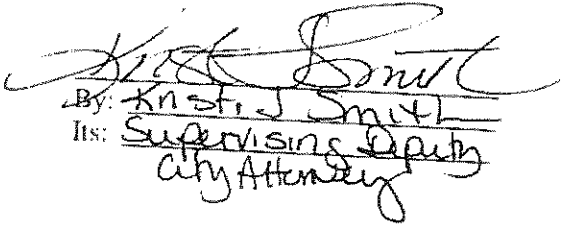 Kristi Smith
By: Kristi J Smith
Its: Supervising Deputy
City Attorney